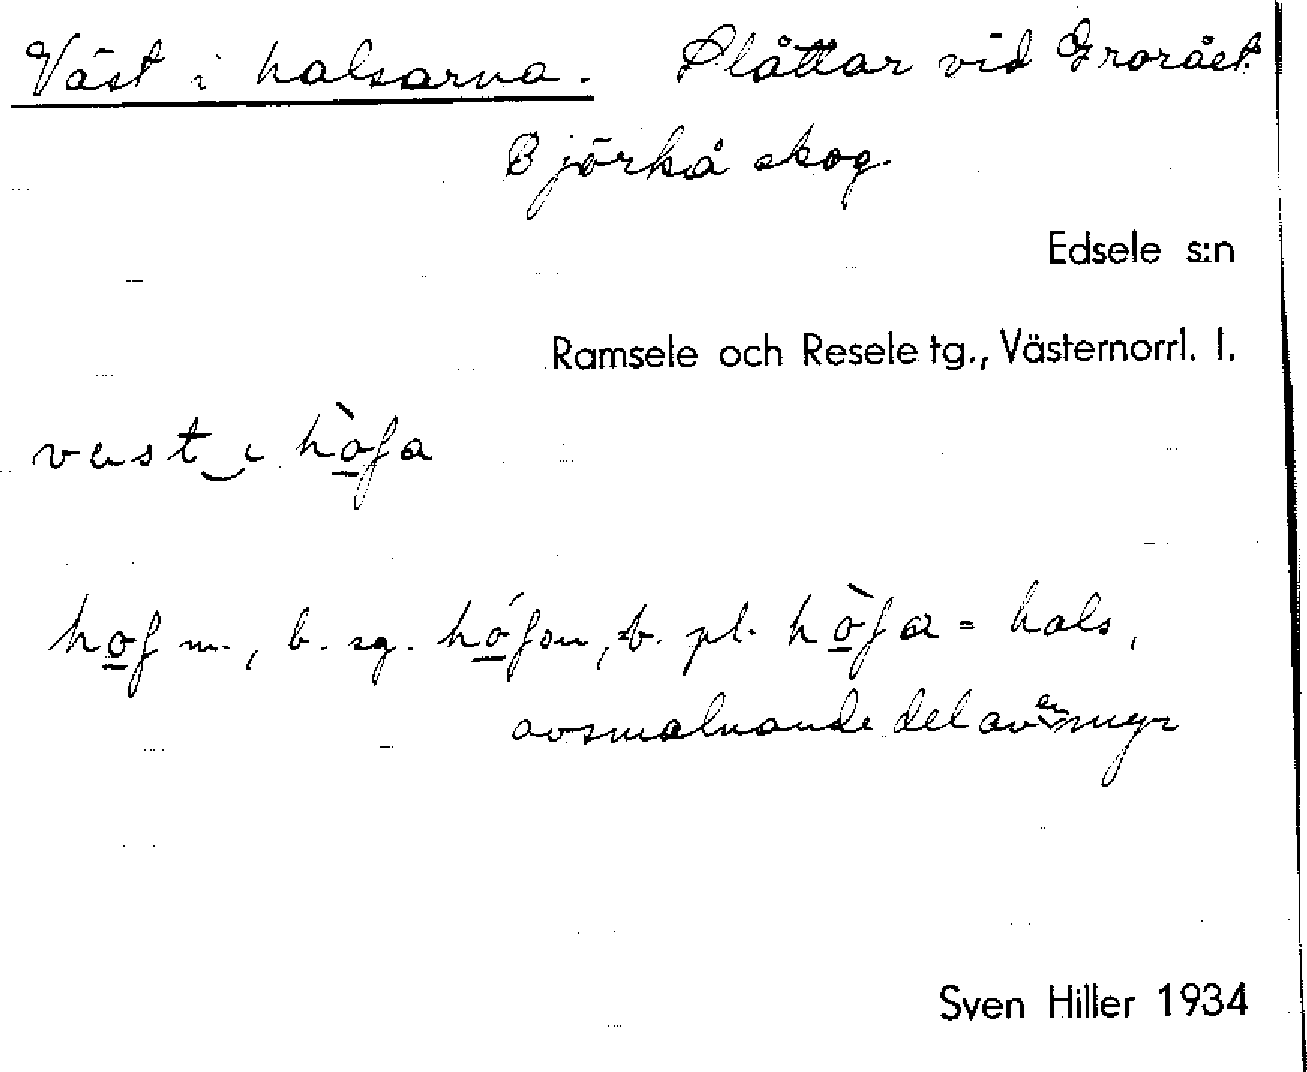 Väst i halsarna. Slåttar vid Groråsk
Björkå skog
Edsele s:n
Ramsele och Resele tg., Västernorrl. l.
vast i hò̱fa
ho̱f m., b. sg. hó̱fsn, b. pl. hò̱fa = hals,
avsmalnande del av en myr
Sven Hiller 1934